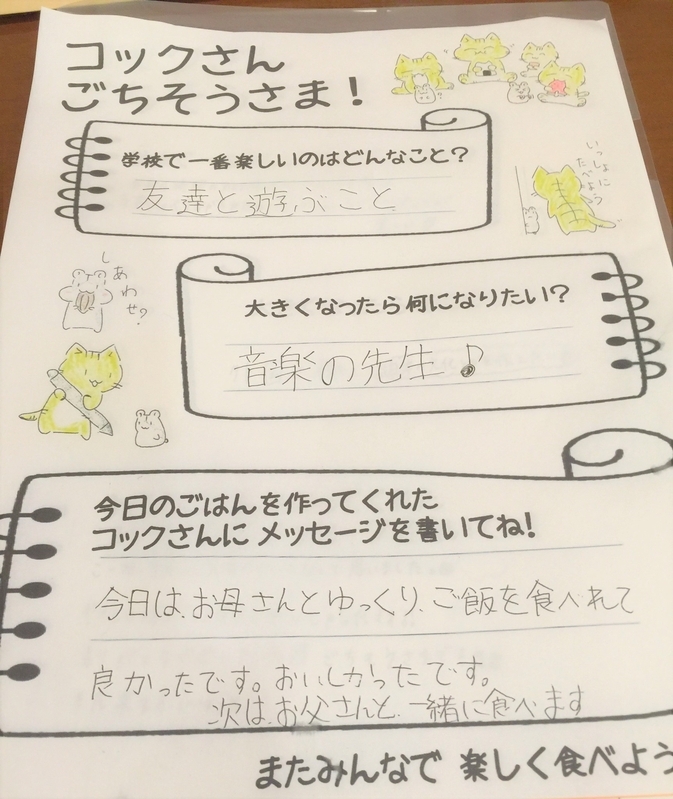 コックさん
ごちそうさま！
学校で一番楽しいのはどんなこと？
友達と遊ぶこと
いっしょに
たべよう
しあわせ？
大きくなったら何になりたい？
音楽の先生♪
今日のごはんを作ってくれた
コックさんに メッセージを書いてね！
今日は、お母さんとゆっくり、ご飯を食べれて
良かったです。おいしかったです。
次は、お父さんと、一緒に食べます
またみんなで 楽しく食べよう